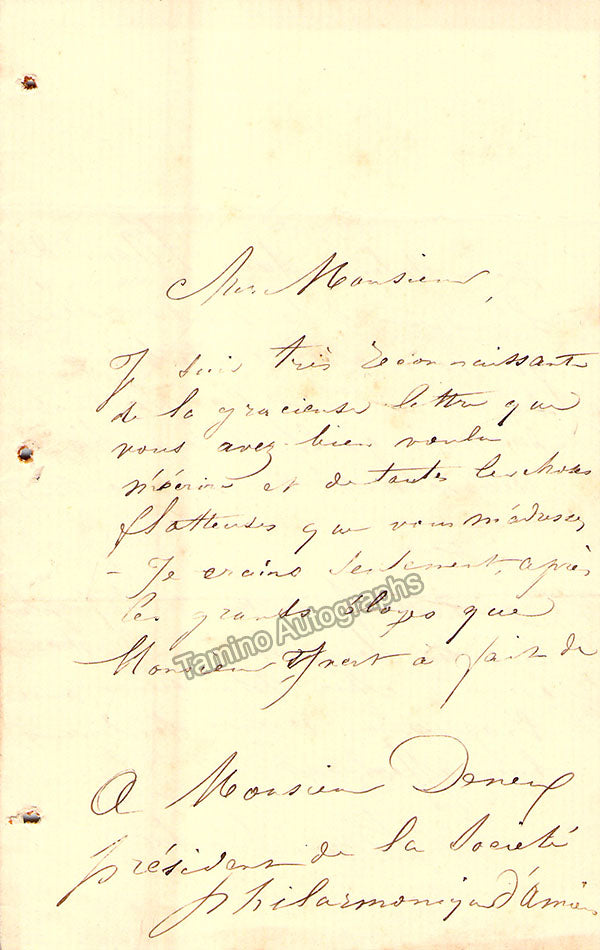 Cher Monsieur,
Je suis très reconnaissante
de la gracieuse lettre que
vous avez bien voulu
m'écrire et de toutes les choses
flatteuses que vous m'adressez
- Je crains seulement, après
les grands éloges que
Monsieur Yvert a fait de
Tamino Autographs
A Monsieur Deneux
président de la Société
philarmonique d'Amiens